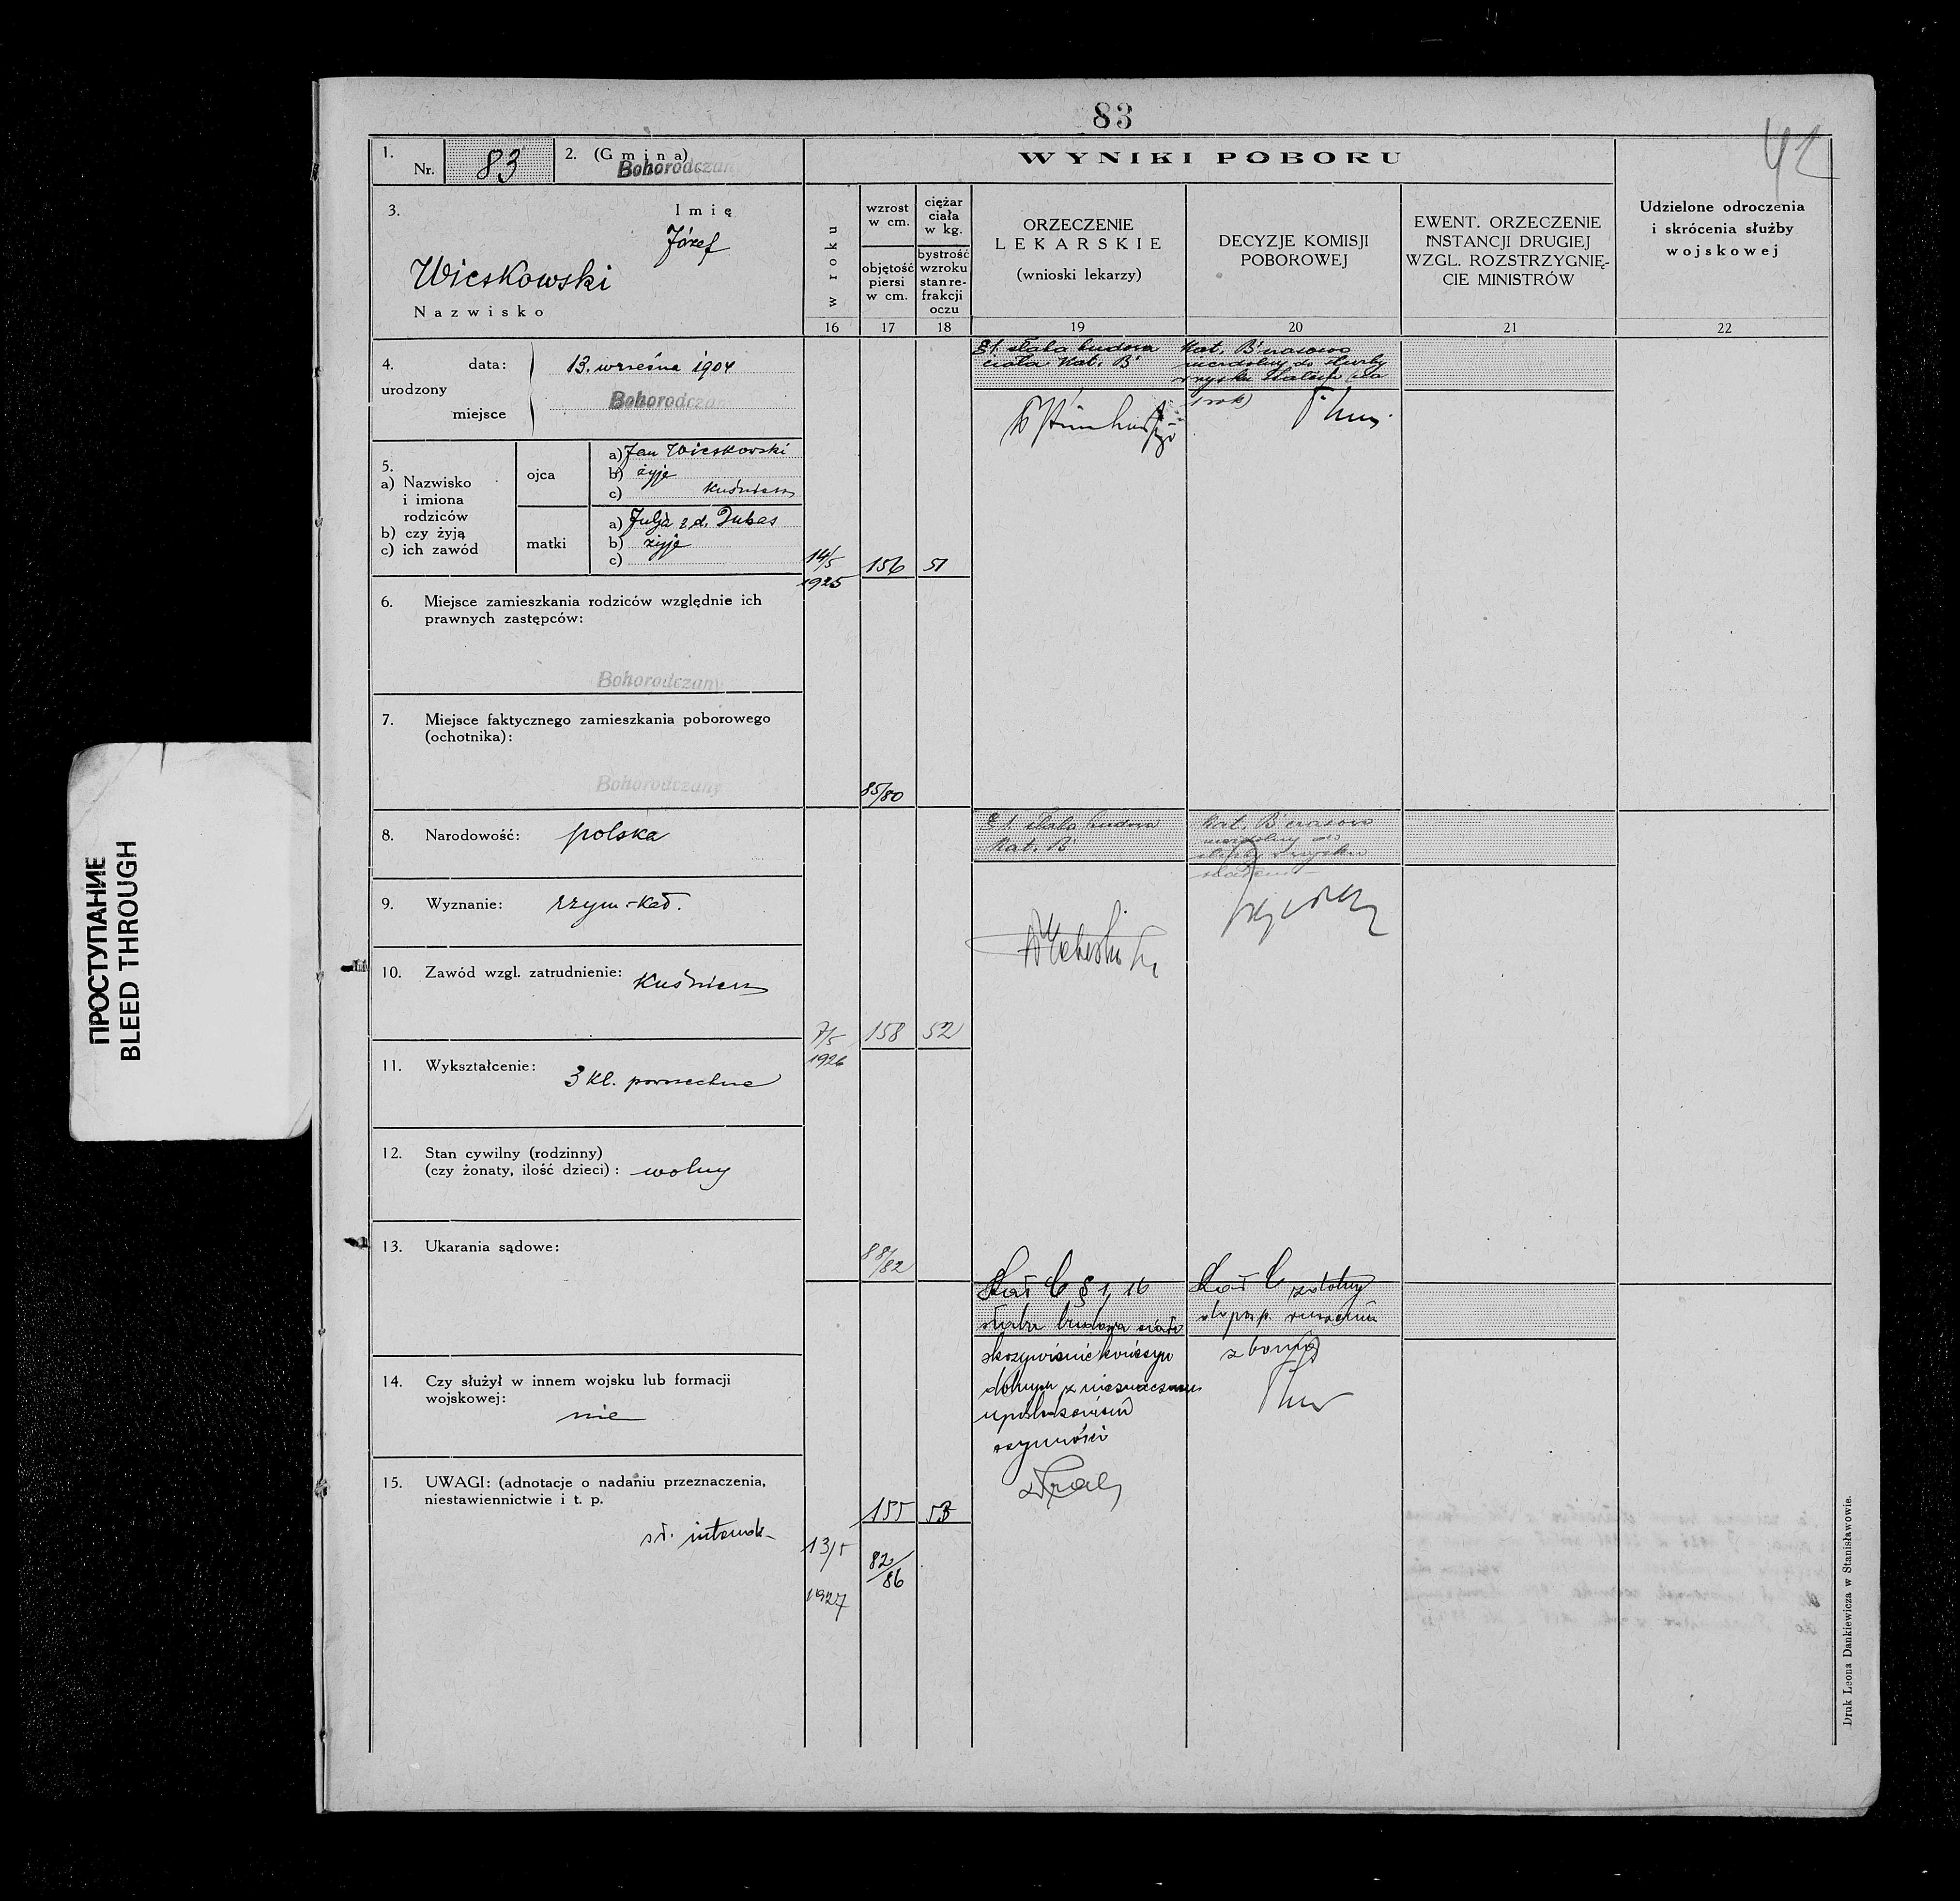 83
42
1. Nr. 83
2. (Gmina) Bohorodczany
WYNIKI POBORU
3. Imię
Józef
Wieskowski
Nazwisko
w roku
wzrost w cm.
objętość piersi w cm.
ciężar ciała w kg.
bystrość wzroku stan re-frakcji oczu
ORZECZENIE
LEKARSKIE
(wnioski lekarzy)
DECYZJE KOMISJI
POBOROWEJ
EWENT. ORZECZENIE
INSTANCJI DRUGIEJ
WZGL. ROZSTRZYGNIĘ-
CIE MINISTRÓW
Udzielone odroczenia
i skrócenia służby
wojskowej
16 17 18 19 20 21 22
4. urodzony
data: 13. września 1904
miejsce Bohorodczany
5.
a) Nazwisko
i imiona
rodziców
b) czy żyją
c) ich zawód
ojca
a) Jan Wieskowski
b) żyje
c) kuśnierz
matki
a) Julja z d. Dubas
b) żyje
c)
14/5
1925
156
51
85/80
§1. słaba budowa
ciała Kat. B
Kat. B czasowo
niezdolny do służby
1 rok)
6. Miejsce zamieszkania rodziców względnie ich
prawnych zastępców:
Bohorodczany
7. Miejsce faktycznego zamieszkania poborowego
(ochotnika):
Bohorodczany
8. Narodowość: polska
9. Wyznanie: rzym.-kat.
10. Zawód wzgl. zatrudnienie: kuśnierz
11. Wykształcenie: 3 kl. powszechne
12. Stan cywilny (rodzinny)
(czy żonaty, ilość dzieci): wolny
13. Ukarania sądowe:
14. Czy służył w innem wojsku lub formacji
wojskowej:
nie
15. UWAGI: (adnotacje o nadaniu przeznaczenia,
niestawiennictwie i t. p.
7/5
1926
158
52
88/82
§1. słaba budowa
Kat. B
Kat. B czasowo
niezdolny do
13/5
1927
155
53
82/86
Kat C § 1, 16
słaba budowa ciała
dolnych z nieznacznem
upośledzeniem
czynności
Kat C zdolny
do posp. ruszenia
z bronią
Druk Leona Dankiewicza w Stanisławowie.
ПРОСТУПАНИЕ
BLEED THROUGH